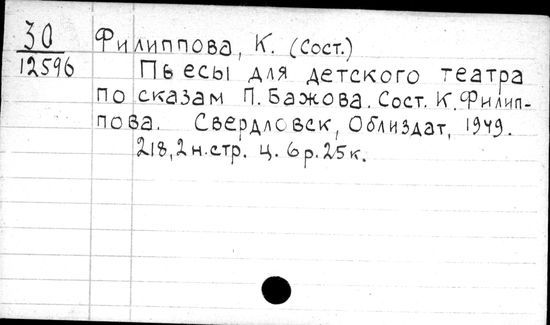 30
12596
Филиппова, К. (Сост.)
Пьесы для детского театра
по сказам П. Бажова. Сост. К. Филип-
пова. Свердловск, Облиздат, 1949.
218, 2 н.стр. ц. 6 р. 25 к.